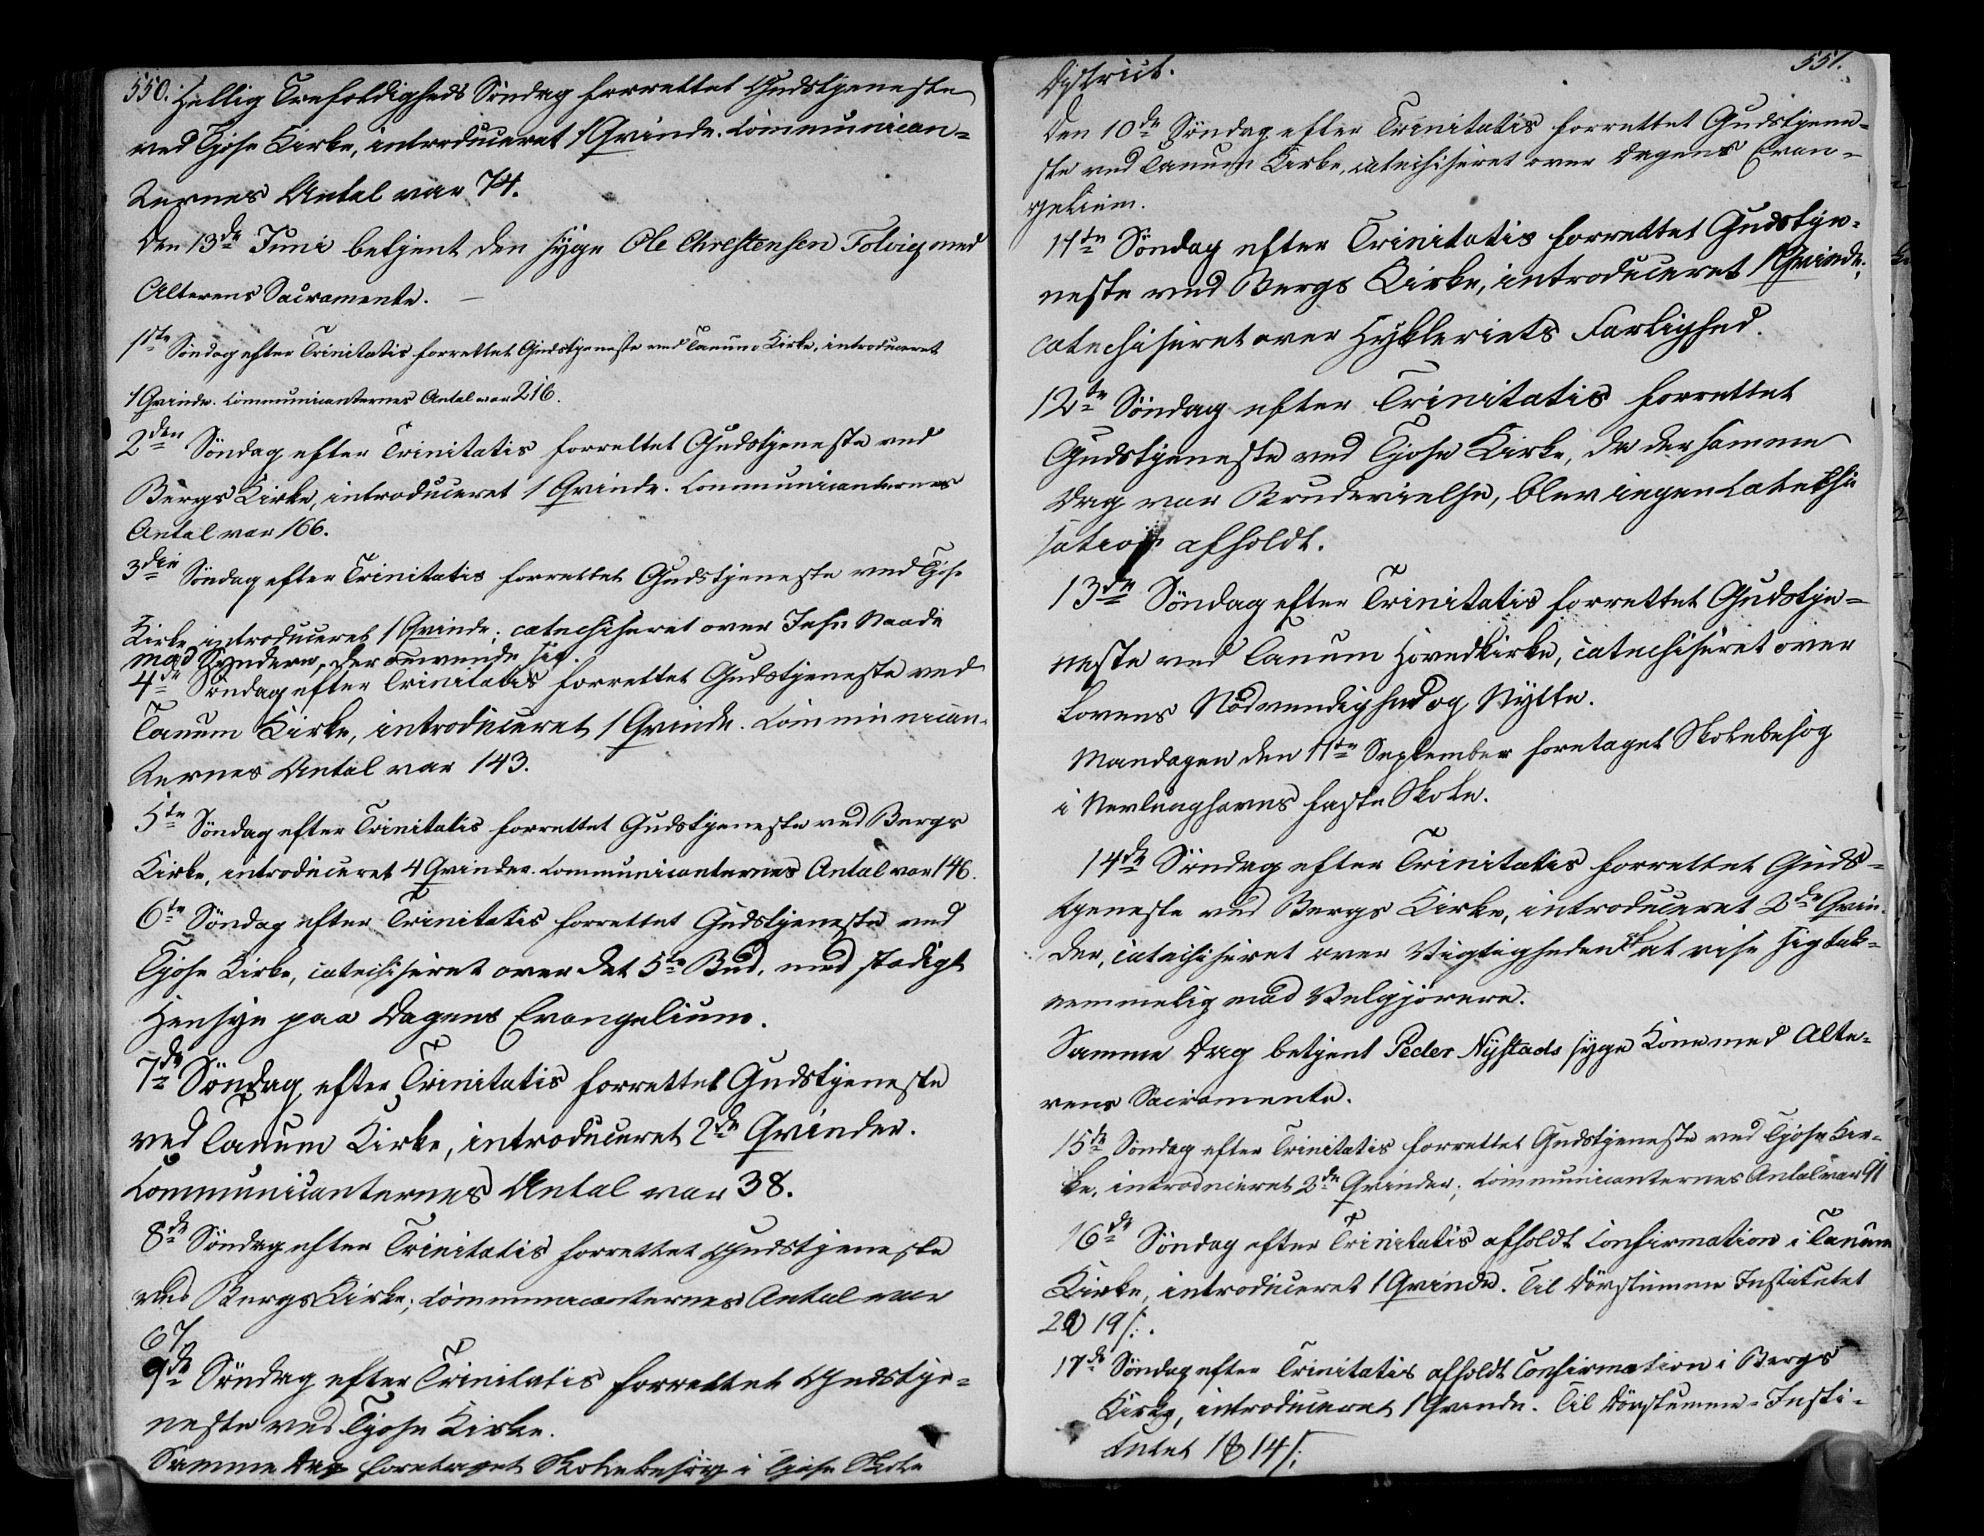 550. Hellig Trefoldigheds Söndag forrettet Gudstjeneste
ved Tjose Kirke, introduceret 1 Qvinde. Communican-
ternes Antal var 74.
Den 13de Juni betjent den syge Ole Christensen Tolvig med
Alterens Sacramente. —
1ste Söndag efter Trinitatis forrettet Gudstjeneste ved Tanum Kirke, introduceret
1 Qvinde. Communicanternes Antal var 216.
2den Söndag efter Trinitatis forrettet Gudstjeneste ved
Bergs Kirke, introduceret 1 Qvinde. Communicanternes
Antal var 166.
3die Söndag efter Trinitatis forrettet Gudstjeneste ved Tjose
Kirke, introduceret 1 Qvinde; catechiseret over Jesu Naade
mod Syndere, der omvende sig.
4de Söndag efter Trinitatis forrettet Gudstjeneste ved
Tanum Kirke, introduceret 1 Qvinde. Communican-
ternes Antal var 143.
5te Söndag efter Trinitatis forrettet Gudstjeneste ved Bergs
Kirke, introduceret 4 Qvinder. Communicanternes Antal var 146.
6te Söndag efter Trinitatis forrettet Gudstjeneste ved
Tjose Kirke, catechiseret over det 5te Bud, med stadigt
Hensyn paa Dagens Evangelium.
7de Söndag efter Trinitatis forrettet Gudstjeneste
ved Tanum Kirke, introduceret 2de Qvinder.
Communicanternes Antal var 38.
8de Söndag efter Trinitatis forrettet Gudstjeneste
ved Bergs Kirke; Communicanternes Antal var
67
9de Söndag efter Trinitatis forrettet Gudstje-
neste ved Tjose Kirke.
Samme Dag foretaget Skolebesög i Tjose Skole
551.
District.
Den 10de Söndag efter Trinitatis forrettet Gudstjene-
ste ved Tanum Kirke, catechiseret over Dagens Evan-
gelium.
11te Söndag efter Trinitatis forrettet Gudstje-
neste ved Bergs Kirke, introduceret 1 Qvinde;
catechiseret over Hykleriets Farlighed.
12te Söndag efter Trinitatis forrettet
Gudstjeneste ved Tjose Kirke, da der samme
Dag var Brudevielse, blev ingen Catechi
sation afholdt.
13de Söndag efter Trinitatis forrettet Gudstje-
neste ved Tanum Hovedkirke, catechiseret over
Lovens Nödvendighed og Nytte.
Mandagen den 11te September foretaget Skolebesög
i Nevlunghavns faste Skole.
14de Söndag efter Trinitatis forrettet Guds-
tjeneste ved Bergs Kirke, introduceret 2de Qvin-
der, catechiseret over Vigtigheden af at vise sig tak-
nemmelig mod Velgjörere.
Samme Dag betjent Peder Nystads syge Kone med Alte-
rens Sacramente.
15de Söndag efter Trinitatis forrettet Gudstjeneste ved Tjose Kir-
ke, introduceret 2de Qvinder; Communicanternes Antal var 91
16de Söndag efter Trinitatis afholdt Confirmation i Tanum
Kirke, introduceret 1 Qvinde. Til Dövstumme Institutet
19 /:.
17de Söndag efter Trinitatis afholdt Confirmation i Bergs
Kirke, introduceret 1 Qvinde. Til Dövstumme-Insti-
tutet 14 /: